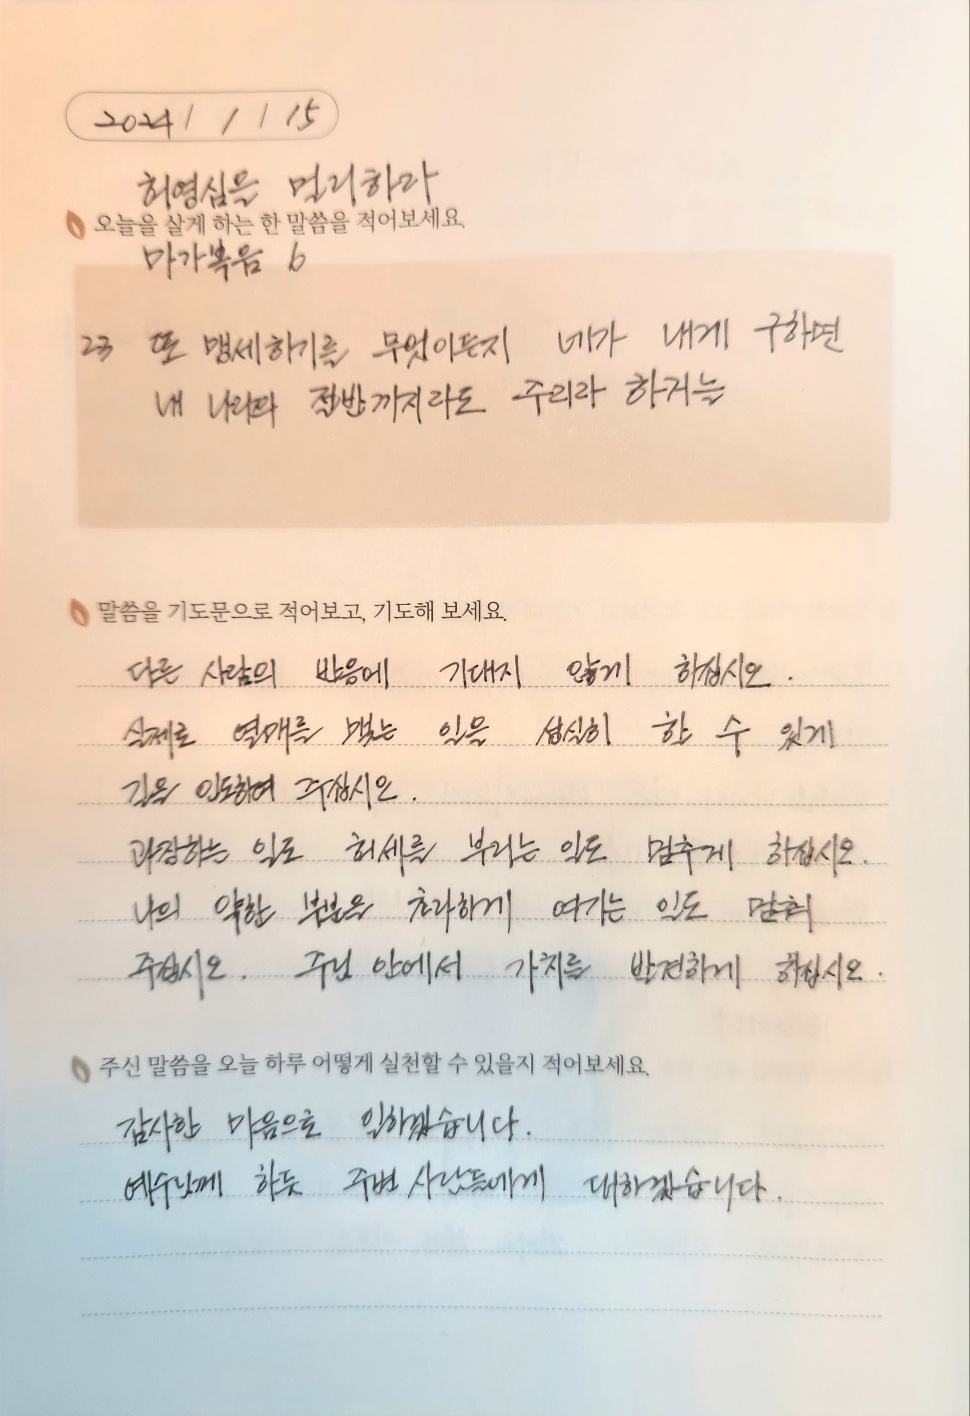 2024 / 1 / 15
허영심을 멀리하라
오늘을 살게 하는 한 말씀을 적어보세요.
마가복음 6
23 또 맹세하기를 무엇이든지 네가 내게 구하면
내 나라의 절반까지라도 주리라 하거늘
말씀을 기도문으로 적어보고, 기도해 보세요.
다른 사람의 반응에 기대지 않게 하십시오.
실제로 열매를 맺는 일을 성실히 할 수 있게
길을 인도하여 주십시오.
과장하는 일도 허세를 부리는 일도 멈추게 하십시오.
나의 약한 부분을 초라하게 여기는 일도 멈춰
주십시오. 주님 안에서 가치를 발견하게 하십시오.
주신 말씀을 오늘 하루 어떻게 실천할 수 있을지 적어보세요.
감사한 마음으로 일하겠습니다.
예수님께 하듯 주변 사람들에게 대하겠습니다.